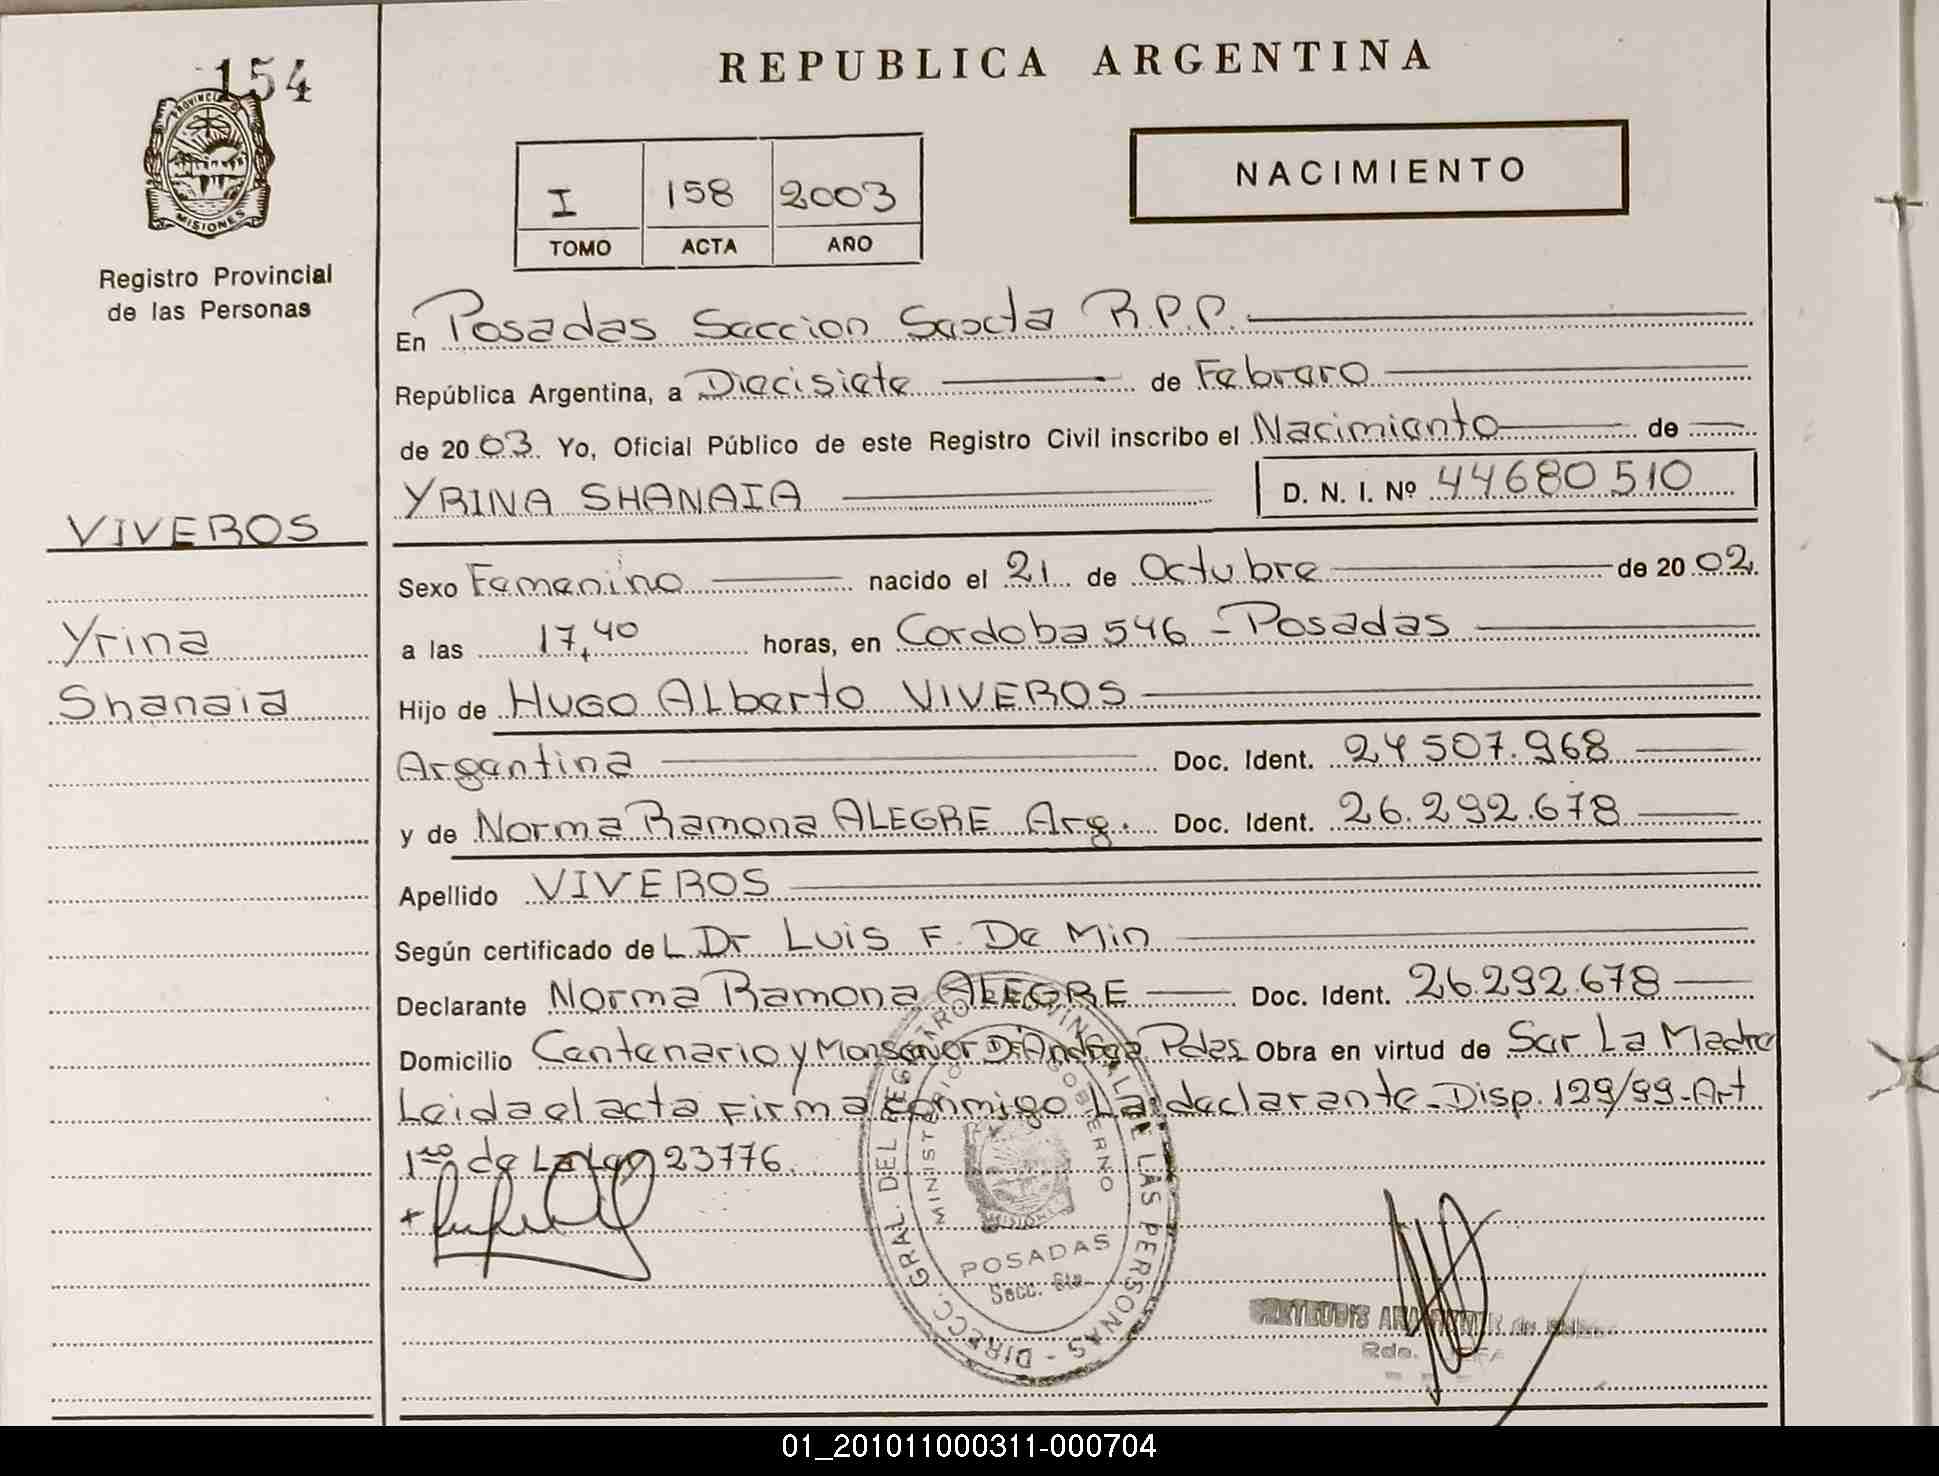 154
PROVINCIA DE
MISIONES
Registro Provincial
de las Personas
VIVEROS
Yrina
Shanaia
REPUBLICA ARGENTINA
I 158 2003
TOMO ACTA AÑO
NACIMIENTO
En Posadas Seccion Sexta R.P.P.
República Argentina, a Diecisiete de Febrero
de 2003. Yo, Oficial Público de este Registro Civil inscribo el Nacimiento de
YRINA SHANAIA D. N. I. Nº 44680510
Sexo Femenino nacido el 21 de Octubre de 2002.
a las 17,40 horas, en Cordoba 546 - Posadas
Hijo de HUGO ALberto VIVEROS
Argentina Doc. Ident. 24507.968
y de Norma Ramona ALEGRE Arg. Doc. Ident. 26.292.678
Apellido VIVEROS
Según certificado deL Dr Luis F. De Min
Declarante Norma Ramona ALEGRE Doc. Ident. 26.292.678
Domicilio Centenario y Monseñor D'Andrea Pdas Obra en virtud de Ser La Madre
Leida el acta Firma conmigo La declarante - Disp. 129/99 - Art
1ro de La Ley 23776.
DIRECC. GRAL. DEL REGISTRO PROVINCIAL DE LAS PERSONAS -
MINISTERIO DE GOBIERNO
MISIONES
POSADAS
Secc. 6ta.
01_201011000311-000704